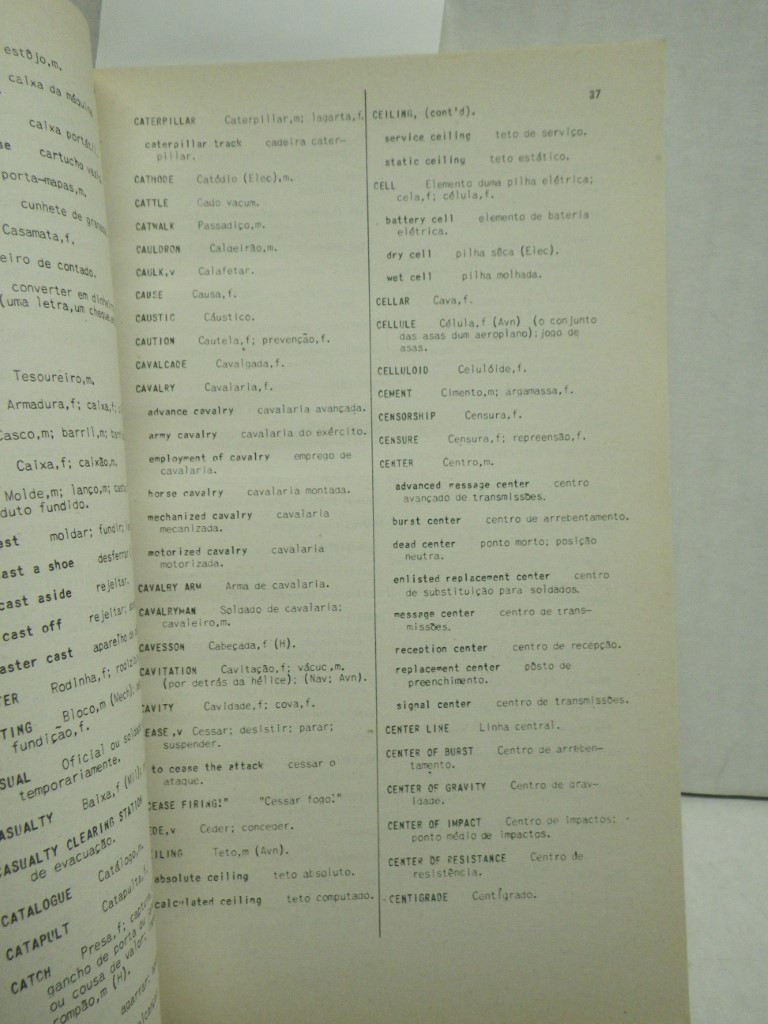 estôjo,m.
caixa da máquina
caixa portátil
cartucho
porta-mapas,m.
cunhete de
Casamata,f.
eiro de contado.
converter em
(uma letra,um
Tesoureiro,m.
Armadura,f; caixa,f;
Casco,m; barril,m;
Caixa,f; caixão,m.
Molde,m; lanço,m;
duto fundido.
moldar; fundir;
cast a shoe desferrar
cast aside rejeitar.
cast off rejeitar;
aster cast aparelho de
TER Rodinha,f;
TING Bloco,m (Mech);
fundição,f.
SUAL Oficial ou
temporariamente.
ASUALTY Baixa,f (Mil);
CASUALTY CLEARING STATION
de evacuação.
CATALOGUE Catálogo,m.
CATAPULT Catapulta,f.
CATCH Presa,f;
gancho de porta ou
ou cousa de valor;
rompão,m (H).
agarrar;
37
CATERPILLAR Caterpillar,m; lagarta,f.
caterpillar track cadeira cater-
pillar.
CATHODE Catódio (Elec),m.
CATTLE Gado vacum.
CATWALK Passadiço,m.
CAULDRON Caldeirão,m.
CAULK,v Calafetar.
CAUSE Causa,f.
CAUSTIC Cáustico.
CAUTION Cautela,f; prevenção,f.
CAVALCADE Cavalgada,f.
CAVALRY Cavalaria,f.
advance cavalry cavalaria avançada.
army cavalry cavalaria do exército.
employment of cavalry emprego de
cavalaria.
horse cavalry cavalaria montada.
mechanized cavalry cavalaria
mecanizada.
motorized cavalry cavalaria
motorizada.
CAVALRY ARM Arma de cavalaria.
CAVALRYMAN Soldado de cavalaria;
cavaleiro,m.
CAVESSON Cabeçada,f (H).
CAVITATION Cavitação,f; vácuo,m.
(por detrás da hélice); (Nav; Avn).
CAVITY Cavidade,f; cova,f.
EASE,v Cessar; desistir; parar;
suspender.
to cease the attack cessar o
ataque.
CEASE FIRING!" "Cessar fogo!"
EDE,v Ceder; conceder.
EILING Teto,m (Avn).
absolute ceiling teto absoluto.
calculated ceiling teto computado.
CEILING, (cont'd).
service ceiling teto de serviço.
static ceiling teto estático.
CELL Elemento duma pilha elétrica;
cela,f; célula,f.
battery cell elemento de bateria
elétrica.
dry cell pilha sêca (Elec).
wet cell pilha molhada.
CELLAR Cava,f.
CELLULE Célula,f (Avn) (o conjunto
das asas dum aeroplano); jogo de
asas.
CELLULOID Celulóide,f.
CEMENT Cimento,m; argamassa,f.
CENSORSHIP Censura,f.
CENSURE Censura,f; repreensão,f.
CENTER Centro,m.
advanced message center centro
avançado de transmissões.
burst center centro de arrebentamento.
dead center ponto morto; posição
neutra.
enlisted replacement center centro
de substituição para soldados.
message center centro de trans-
missões.
reception center centro de recepção.
replacement center pôsto de
preenchimento.
signal center centro de transmissões.
CENTER LINE Linha central.
CENTER OF BURST Centro de arreben-
tamento.
CENTER OF GRAVITY Centro de grav-
idade.
CENTER OF IMPACT Centro de impactos;
ponto médio de impactos.
CENTER OF RESISTANCE Centro de
resistência.
CENTIGRADE Centígrado.